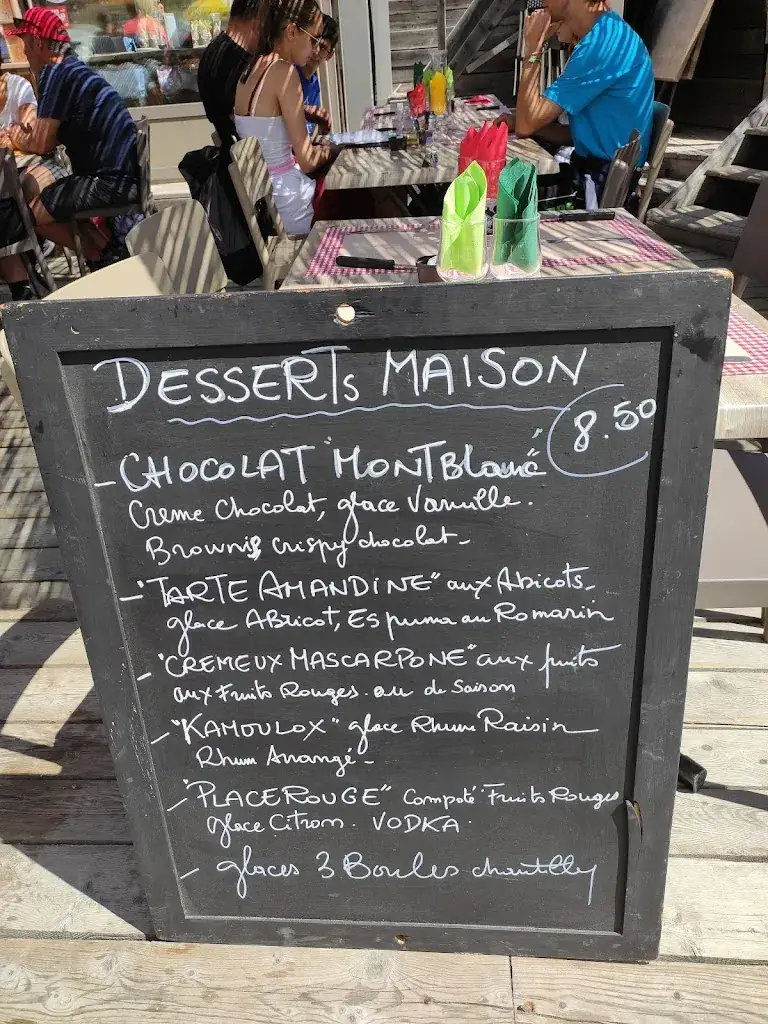 DESSERTS MAISON
8.50
- CHOCOLAT "MONTBlanc"
Creme Chocolat, glace Vanille.
Brownie crispy chocolat -
- "TARTE AMANDINE" aux Abicots -
glace ABricot, Espuma au Romarin
- "CREMEUX MASCARPONE" aux fruits
aux Fruits Rouges. ou de Saison
- "KAMOULOX" glace Rhum Raisin
Rhum Arrangé -
- "PLACE ROUGE" Compoté Fruits Rouges
glace Citron. VODKA.
- glaces 3 Boules chantilly